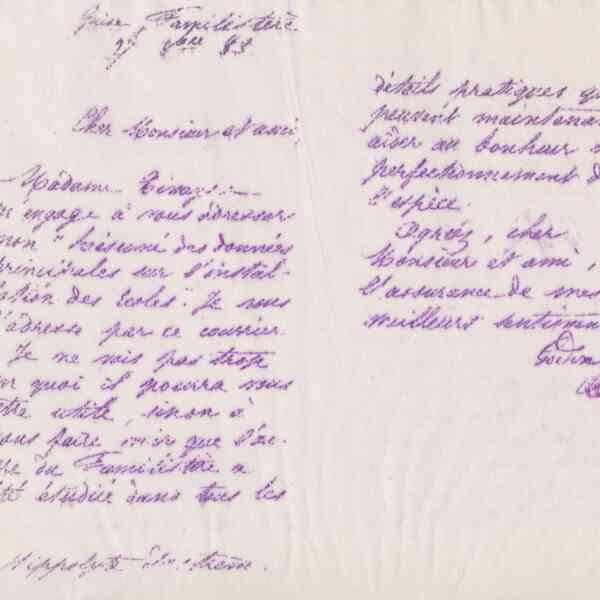 Guise Familistère
27 9bre 83
Cher Monsieur et ami,
Madame
engage à vous adresser
mon "Résumé des données
principales sur l'instal-
lation des écoles". Je vous
l'adresse par ce courrier.
Je ne vois pas trop
en quoi il pourra vous
être utile, sinon à
vous faire voir que l'
du Familistère a
été étudiée dans tous les
Hippolyte
détails pratiques qu
peuvent maintenan
aider au bonheur
perfectionnement d
l'espèce.
Agréez, cher
Monsieur et ami,
l'assurance de mes
meilleurs sentimen
Godin